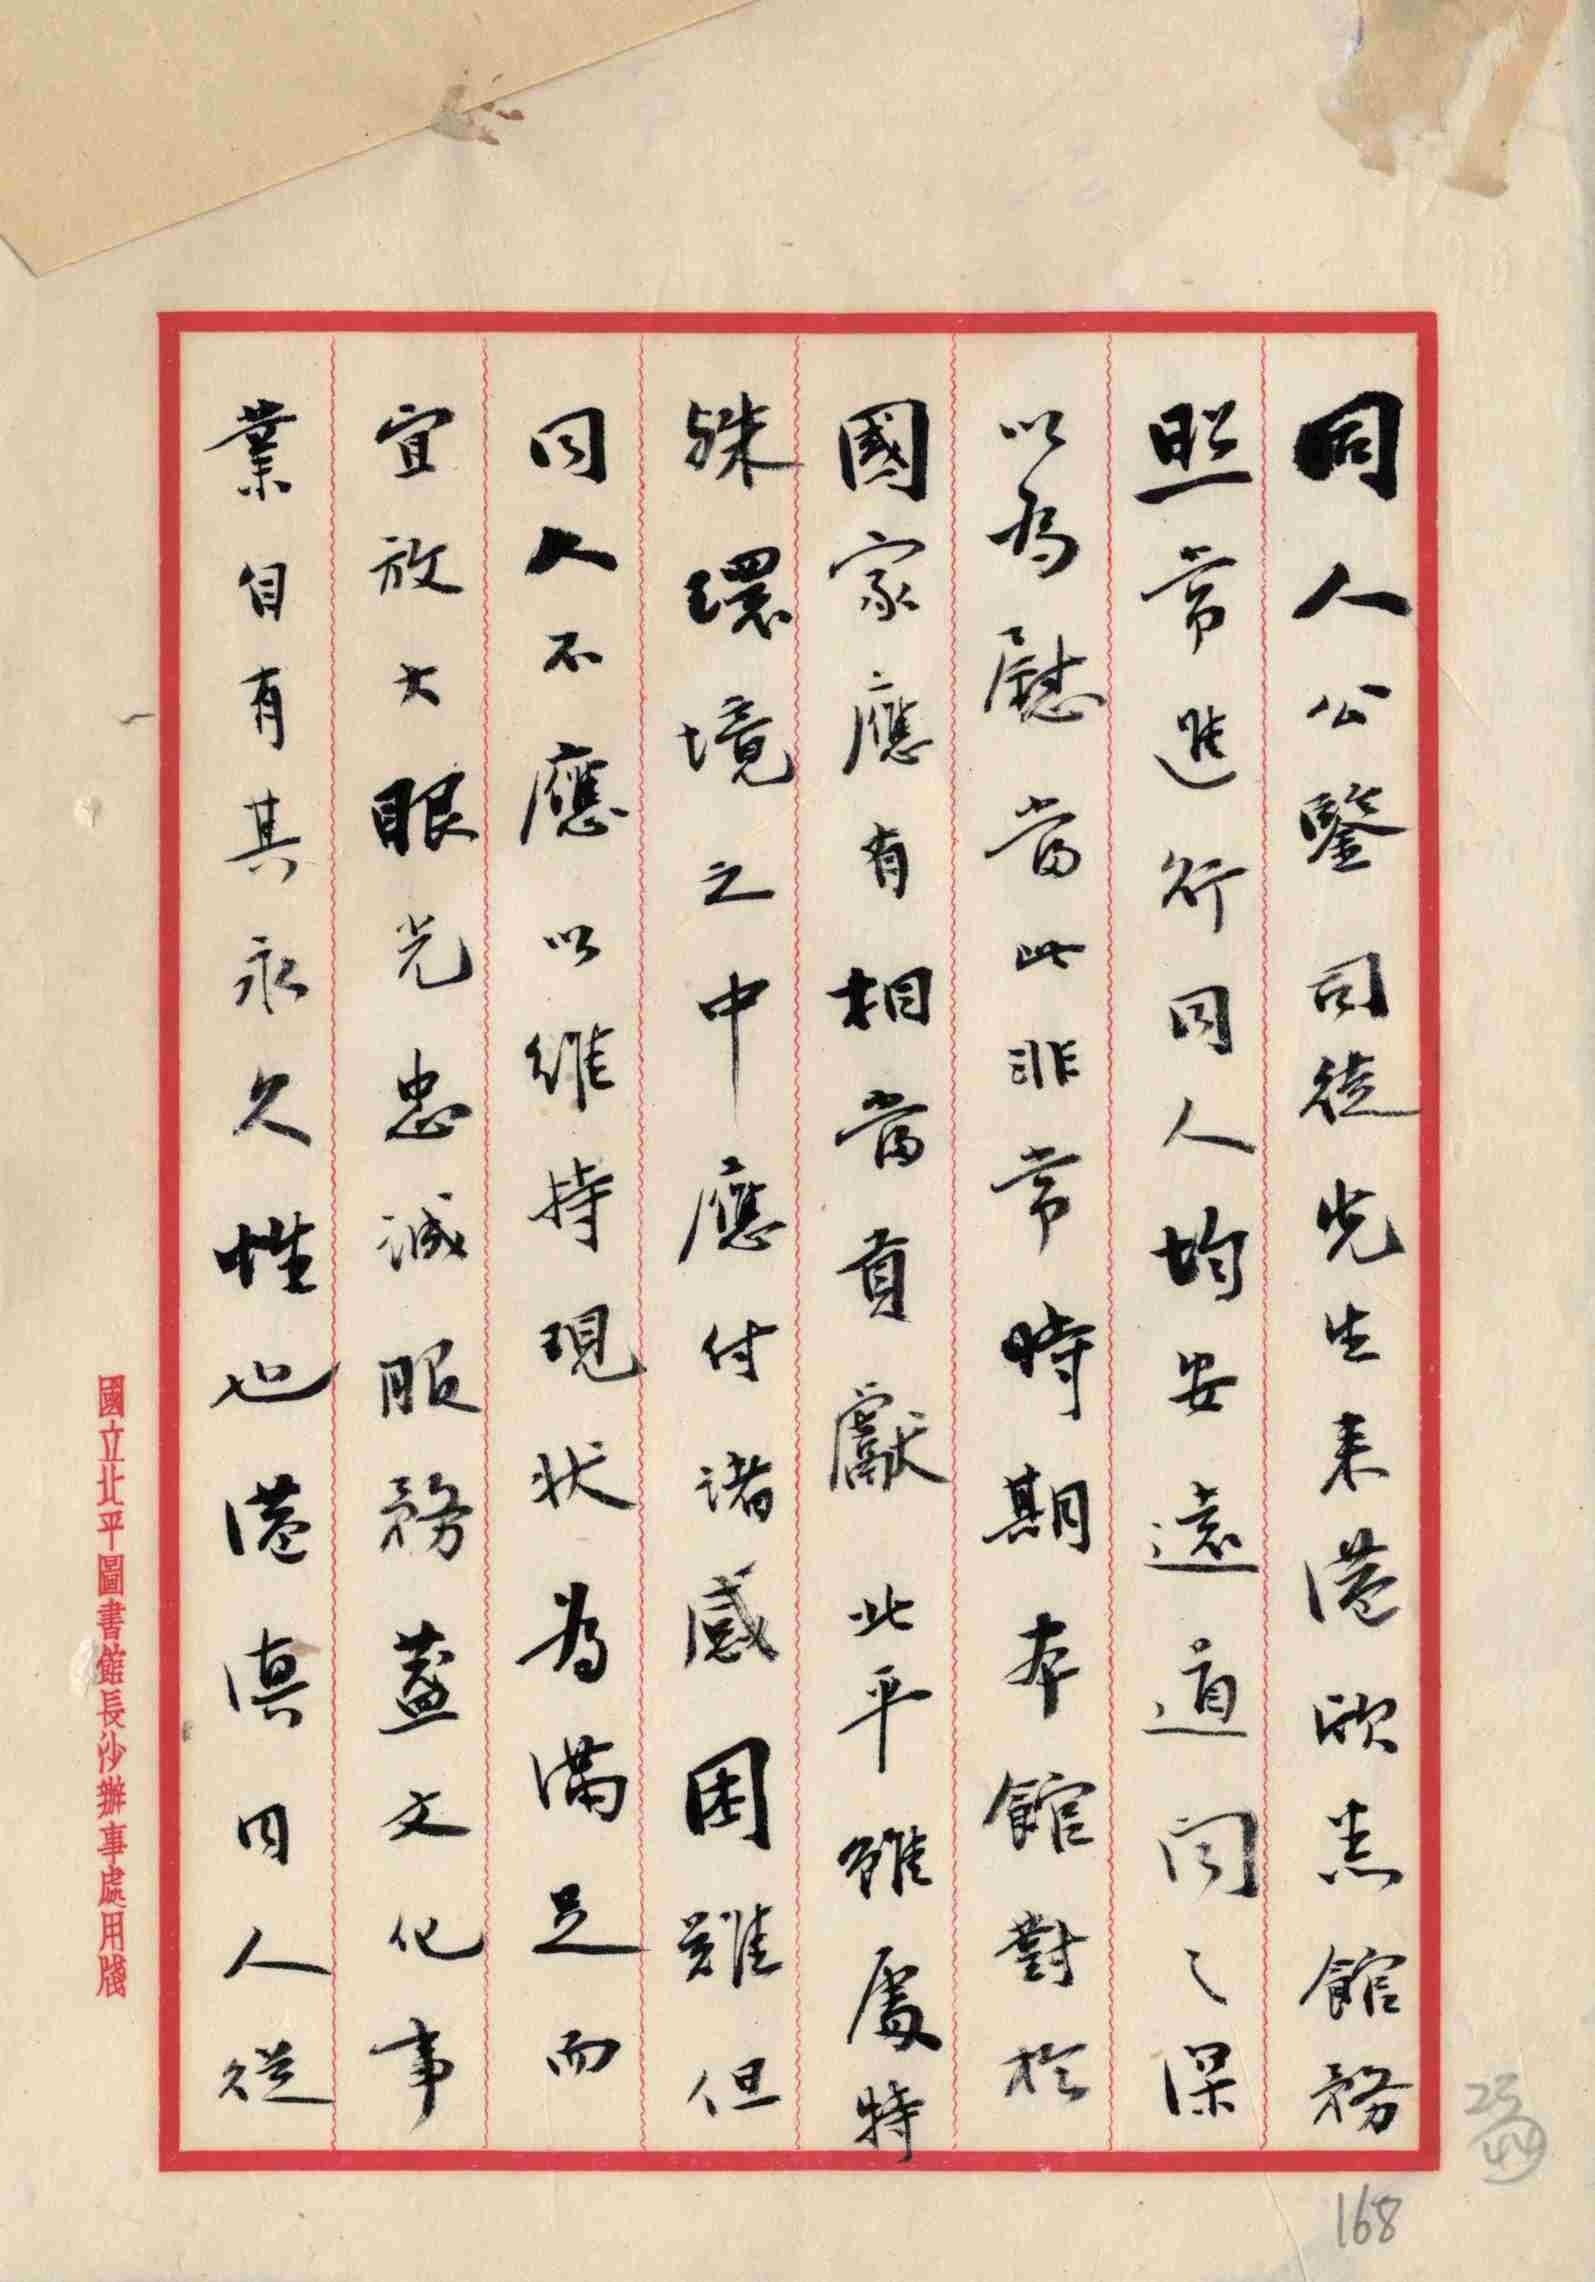 同人公鑒司徒先生來港欣悉館務
照常進行同人均安遠道聞之深
以為慰當此非常時期本館對於
國家應有相當貢獻北平雖處特
殊環境之中應付諸感困難但
同人不應以維持現狀為滿足而
宜放大眼光忠誠服務蓋文化事
業自有其永久性也港滇同人從
國立北平圖書館長沙辦事處用牋
25
44
168